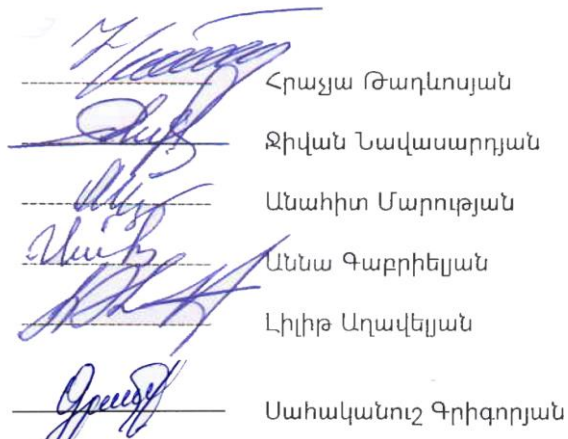 Հրաչյա Թադևոսյան
Ջիվան Նավասարդյան
Անահիտ Մարության
Աննա Գաբրիելյան
Լիլիթ Աղավելյան
Սահականուշ Գրիգորյան